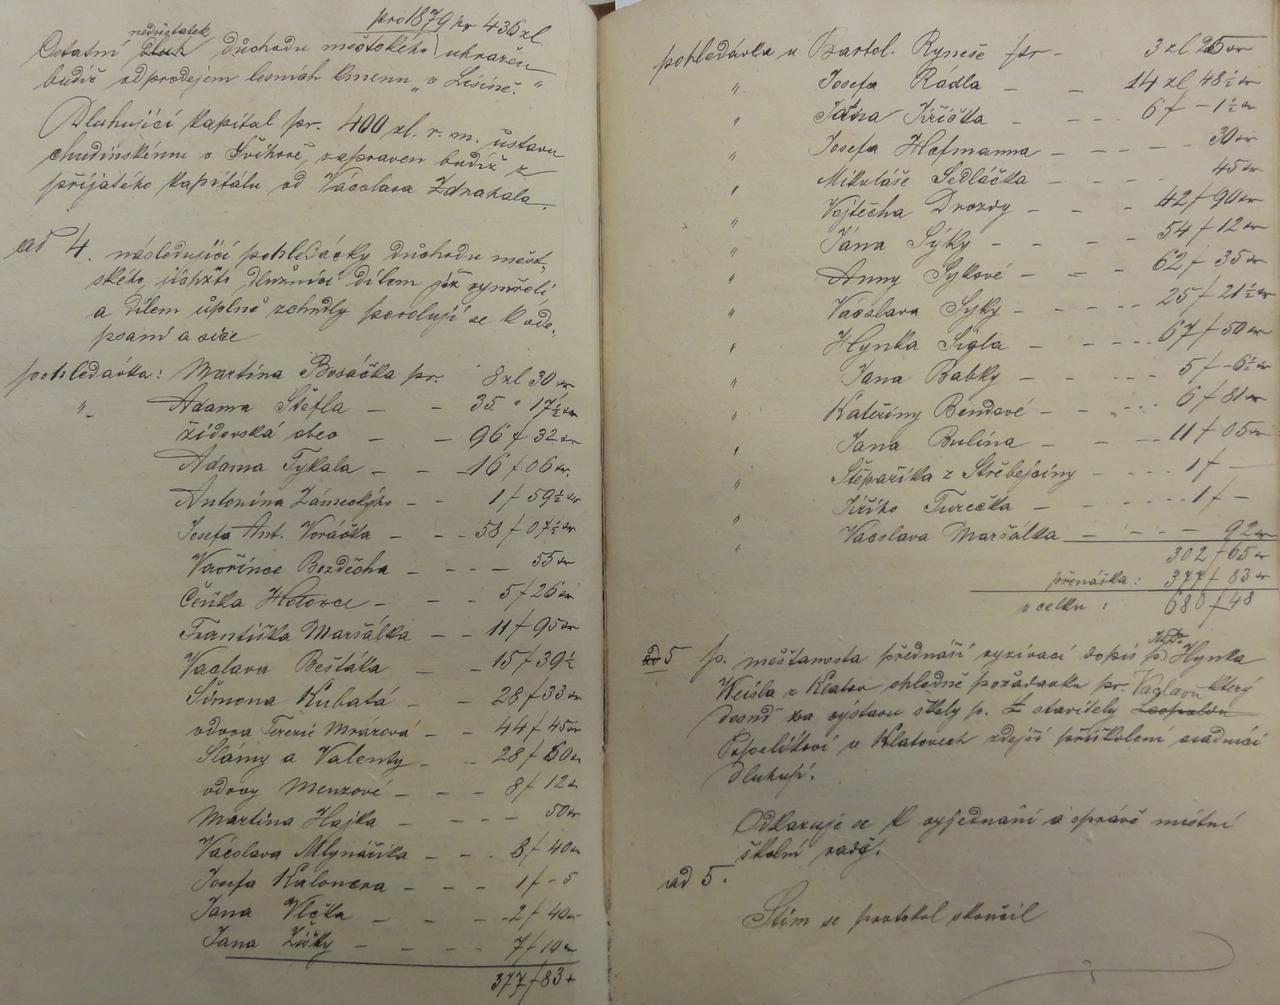 pro 1879 pr 436 zl.
nedůstatek
Ostatní důchodu městského uhražen
budiž odprodejem lesních kmenu „v Lišině.“
Dluhující kapitál pr. 400 zl. r. m. ústavu
chudinskému v Švihově, zapraven budiž z
přijatého kapitálu od Václava Zdrahala.
ad 4. následující pohledávky důchodu měst-
ského, jichžto dlužníci dílem již vymřeli
a dílem úplně zchudly povolují se k ode-
psaní a sice
pohledávka: Martina Bosáčka pr. 8 zl 30 kr
„ Adama Štefla — — 35 „ 17½ kr
židovská obec — — 96 f 32 kr
Adama Tykala — — 16 f 06 kr.
Antonína Zámeckýho — 1 f 59½ kr
Josefa Ant. Voráčka — — 58 f 07½ kr
Vavřince Bezděcha — — — 55 kr
Čeňka — — — 5 f 26 kr
Františka Maršálka — — 11 f 95 kr
Vaclava Bešťáka — — 15 f 39½
Šimona Kubatá — — 28 f 33 kr
vdova Terezie Mrázová — — 44 f 45 kr
Slámy a Valenty — — 28 f 60 kr
vdovy Menzové — — — 8 f 12 kr
Martina Hajka — — — — 50 kr
Václava Mlynáříka — — 8 f 40 kr
Josefa — — — 1 f – 5
Jana Vlčka — — — 2 f 40 kr
Jana Žižky — — — — 7 f 10 kr
377 f 83 kr
pohledávka u Bartol. Ryneše pr — 3 zl 25 kr
„ Josefa Rádla — — 14 zl 48½ kr
„ Jana Křička — — — 67 – 1½ kr
„ Josefa Hofmanna — — — — 30 kr
„ Mikuláše Sedláčka — — — 45 kr
„ Vojtěcha Drozdy — — — 42 f 90 kr
„ Jána Sýky — — — 54 f 12 kr
„ Anny Sykové — — — 62 f 35 kr
„ Václava Syky — — — 25 f 21½ kr
„ Hynka Sigla — — — 67 f 50 kr
„ Jana Babky — — — 5 f – 6½ kr
„ Kateřiny Bendové — — — 6 f 81 kr
„ Jana Bulína — — — 11 f 05 kr
„ Štěpaříka z Střebejčiny — — 1 f —
„ Jiřího Turečka — — — 1 f —
„ Václava Maršálka — — — 92 kr
302 f 65 kr
přenáška: 377 f 83 kr
v celku: 680 f 48
ad 5 p. měšťanosta přednáší vyzívací dopis p. JUDr. Hynka
Weisla z Klatov ohledně požadavku pr. který
za výstavu školy p. stavitely
v Klatovech zdejší přiškolení
dluhují.
Odkazuje se k vyjednání a správě místní
školní radě.
ad 5.
Stím se protokol skončil